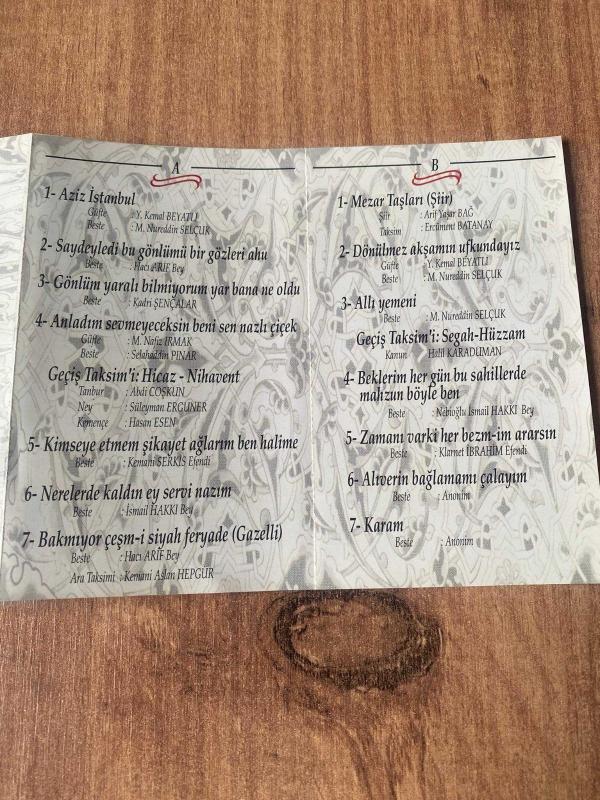 A
1- Aziz İstanbul
Güfte : Y. Kemal BEYATLI
Beste : M. Nureddin SELÇUK
2- Saydeyledi bu gönlümü bir gözleri ahu
Beste : Hacı ARİF Bey
3- Gönlüm yaralı bilmiyorum yar bana ne oldu
Beste : Kadri ŞENÇALAR
4- Anladım sevmeyeceksin beni sen nazlı çiçek
Güfte : M. Nafiz IRMAK
Beste : Selahaddin PINAR
Geçiş Taksim'i: Hicaz - Nihavent
Tanbur : Abdi COŞKUN
Ney : Süleyman ERGUNER
Kemençe : Hasan ESEN
5- Kimseye etmem şikayet ağlarım ben halime
Beste : Kemani SERKİS Efendi
6- Nerelerde kaldın ey servi nazım
Beste : İsmail HAKKI Bey
7- Bakmıyor çeşm-i siyah feryade (Gazelli)
Beste : Hacı ARİF Bey
Ara Taksimi : Kemani Aslan HEPGÜR
B
1- Mezar Taşları (Şiir)
Şiir : Arif Yaşar BAĞ
Taksim : Ercüment BATANAY
2- Dönülmez akşamın ufkundayız
Güfte : Y. Kemal BEYATLI
Beste : M. Nureddin SELÇUK
3- Allı yemeni
Beste : M. Nureddin SELÇUK
Geçiş Taksim'i: Segah-Hüzzam
Kanun : Halil KARADUMAN
4- Beklerim her gün bu sahillerde
mahzun böyle ben
Beste : Nebioğlu İsmail HAKKI Bey
5- Zamanı varki her bezm-im ararsın
Beste : Klarnet İBRAHİM Efendi
6- Alıverin bağlamamı çalayım
Beste : Anonim
7- Karam
Beste : Anonim